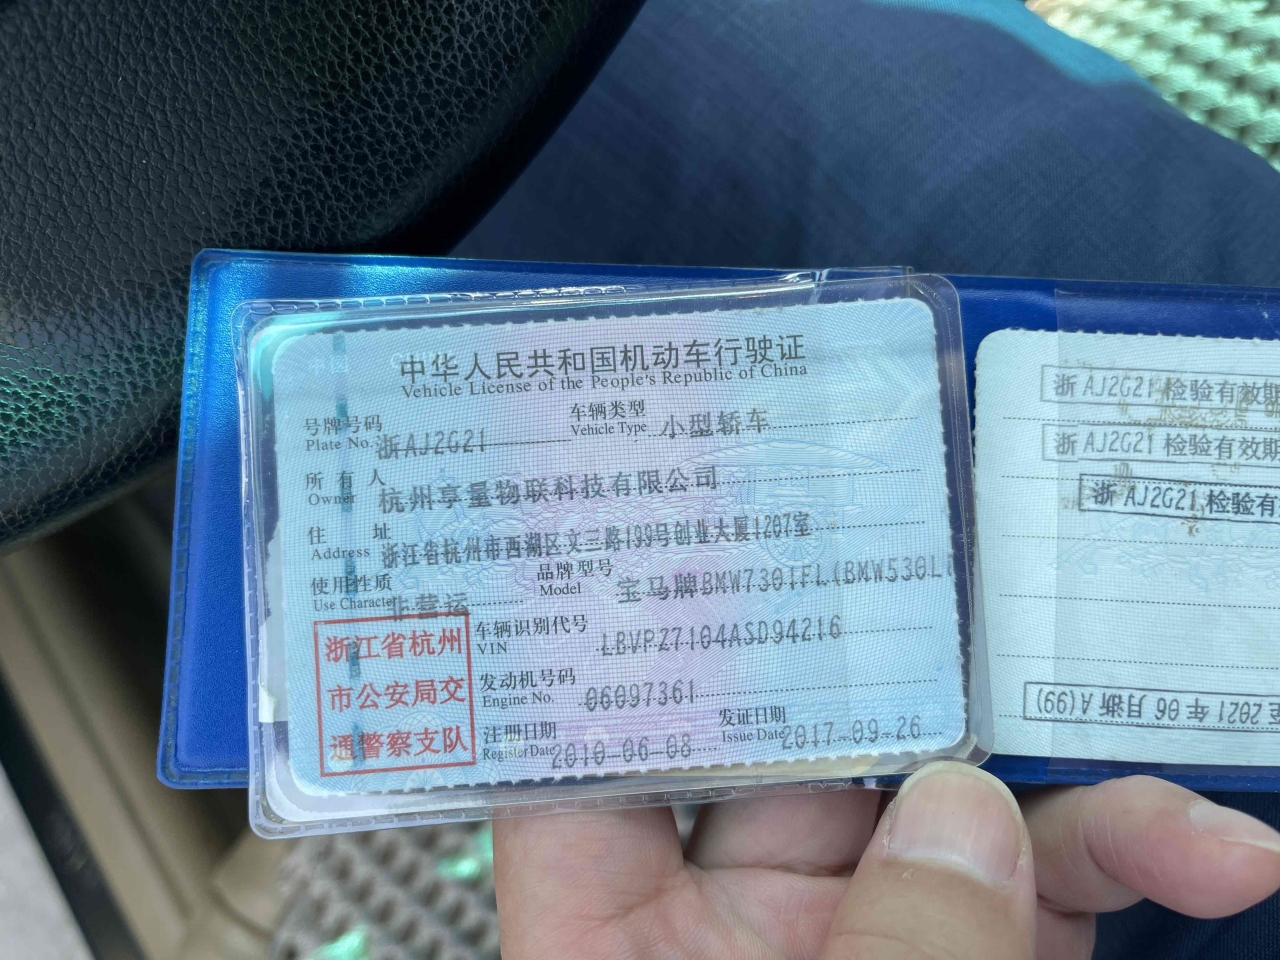 中华人民共和国机动车行驶证
Vehicle License of the People's Republic of China
号牌号码 浙AJ2G21 车辆类型 小型轿车
Plate No. Vehicle Type
所有人 杭州享量物联科技有限公司
Owner
住址 浙江省杭州市西湖区文三路199号创业大厦1207室
Address
使用性质 非营运 品牌型号 宝马牌BMW7301FL(BMW530L
Use Character Model
浙江省杭州
市公安局交
通警察支队
车辆识别代号 LBVPZ7104ASD94216
VIN
发动机号码 06097361
Engine No.
注册日期 2010-06-08 发证日期 2017-09-26
Register Date Issue Date
浙 AJ2G21 检验有效期
浙 AJ2G21 检验有效期
浙 AJ2G21 检验有
至 2021 年 06 月 浙 A (99)